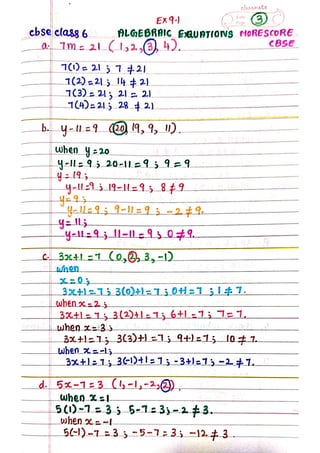 classmate
Date
Page
3
EX 9.1
cbse class 6 ALGEBRAIC EQUATIONS MORESCORE CBSE
a. 7m = 21 (1, 2, 3, 4).
7(1) = 21 ; 7 ≠ 21
7(2) = 21 ; 14 ≠ 21
7(3) = 21 ; 21 = 21.
7(4) = 21 ; 28 ≠ 21
b. y-11 = 9 (20, 19, 9, 11).
when y = 20
y-11 = 9 ; 20-11 = 9 ; 9 = 9
y = 19 ;
y-11 = 9 ; 19-11 = 9 ; 8 ≠ 9
y = 9 ;
y-11 = 9 ; 9-11 = 9 ; -2 ≠ 9.
y = 11 ;
y-11 = 9 ; 11-11 = 9 ; 0 ≠ 9.
c. 3x+1 = 7 (0, 2, 3, -1)
when
x = 0 ;
3x+1 = 7 ; 3(0)+1 = 7 ; 0+1 = 7 ; 1 ≠ 7.
when x = 2 ;
3x+1 = 7 ; 3(2)+1 = 7 ; 6+1 = 7 ; 7 = 7.
when x = 3 ;
3x+1 = 7 ; 3(3)+1 = 7 ; 9+1 = 7 ; 10 ≠ 7.
when x = -1 ;
3x+1 = 7 ; 3(-1)+1 = 7 ; -3+1 = 7 ; -2 ≠ 7.
d. 5x-7 = 3 (1, -1, -2, 2)
when x = 1
5(1)-7 = 3 ; 5-7 = 3 ; -2 ≠ 3.
when x = -1
5(-1)-7 = 3 ; -5-7 = 3 ; -12 ≠ 3.